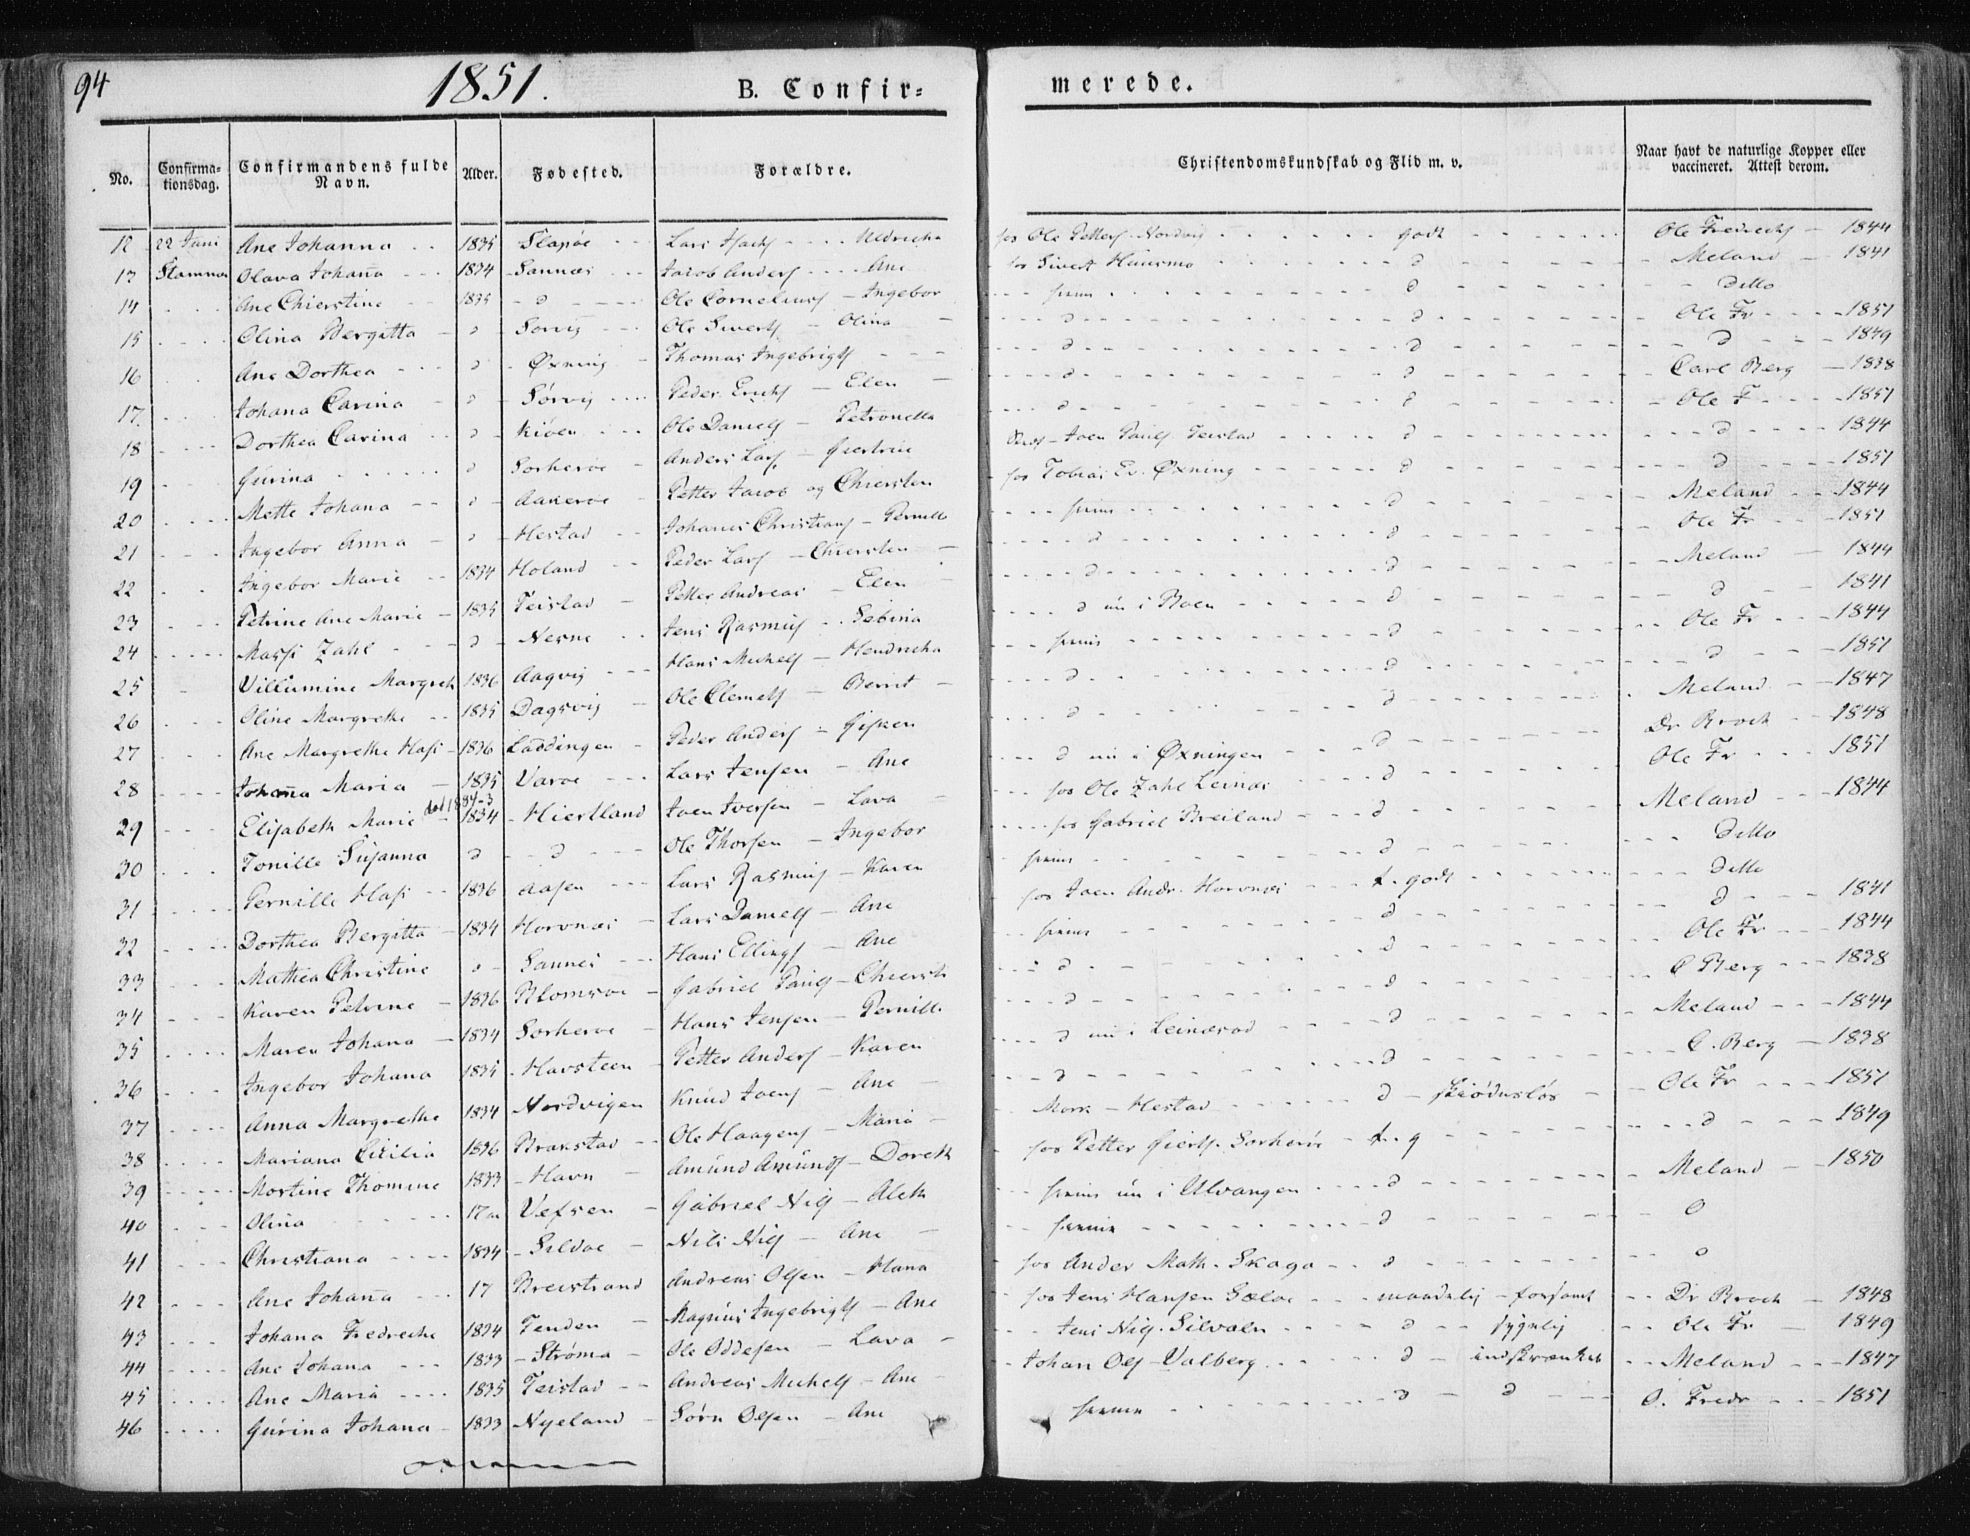 94
1851.
B. Confir=
merede.
No.
Confirma-
tionsdag.
Confirmandens fulde
Navn.
Alder.
Fødested.
Forældre.
Christendomskundskab og Flid m. v.
Naar havt de naturlige Kopper eller
vaccineret. Attest derom.
12 22 Juni Ane Johanna 1835 Slapøe Lars Hedricha hos Ole Petters Nordvig godt Ole Fredrichs 1844
13 Stamnes Olava Johana 1834 Sannæs Jacob Anders Ane hos Sivert Haarsmo d Meland 1841
14 Ane Chierstine 1835 d Ole Cornelius Ingebor hiem d ditto
15 Olina Bergitta d Sørvig Ole Siverts Olina d d Ole Fr 1851
16 Ane Dorthea d Øxning Thomas Ingebrigts d d d 1849
17. Johana Carina d Sørvig Peder Erichs Elen d d Carl Berg 1838
18 Dorthea Carina d Kiøen Ole Daniels Petronella d d Ole F 1851
19 Gurina d Sorheroe Anders Lars Giertrue Joen Pauls Teistad d d 1844
20 Mette Johana d Aakeroe Petter Jacob og Chiersten hos Tobias Ev. Øxning d d 1851
21 Ingebor Anna d Hestad Johanes Christians Pernille hiem d Meland 1844
22 Ingebor Marie 1834 Holand Peder Lars Chiersten d d Ole Fr 1851
23 Petrine Ane Marie 1835 Teistad Petter Andreas Elen d d Meland 1844
24 Massi Zahl d Nesne Jens Rasmus Sebina d nu i Boen d d 1841
25 Villumine Margreth 1836 Aagvig Hans Michels Hendricha hiem d Ole Fr 1844
26 Oline Margrethe 1835 Dagsvig Ole Clemets Berrit d d d 1851
27 Ane Margrethe Hass 1836 Løddingen Peder Anders Gisken d d Meland 1847
28 Johanna Maria 1835 Varoe Lars Jensen Ane d nu i Øxningen d Dr Broch 1848
29 Elisabeth Marie død 1884-3 1834 Hiertland Joen Iversen Lava hos Ole Zahl Leines d Ole Fr 1851
30 Tonille Susanna d d Ole Thorsen Ingebor hos Gabriel Breiland d Meland 1844
31 Pernille Hass 1836 Aasen Lars Rasmus Karen hiem d Ditto
32 Dorthea Bergitta 1834 Horvnæs Lars Daniels Ane hos Joen Andr. Horvnæs t. godt ditto
33 Mathea Christine d Sannes Hans Ellings Ane hiem d d 1841
34 Karen Petrine 1836 Blomsoe Gabriel Pauls Chierst d d Ole Fr 1844
35 Maren Johana 1834 Sorheroe Hans Jensen Pernille d d C Berg 1838
36 Ingebor Johana 1835 Havsteen Petter Anders Karen d nu i Leinesod d Meland 1844
37 Anna Margrethe 1834 Nordvigen Knud Joens Ane d d C. Berg 1838
38 Mariana Cicilia 1836 Brakstad Ole Haagens Maria Mork - Hestad d skiødusløs Ole Fr 1851
39 Mortine Thomine 1833 Havn Amund Amunds Doreth hos Petter Gierts. Sorherøe t. g d 1849
40 Olina 17 Vefsen Gabriel Nils Aleth hiem nu i Ulvangen d Meland 1850
41 Christiana 1834 Sildoe Nils Nils Ane hiem d 0
42 Ane Johana 17 Breistrand Andreas Olsen Hana hos Ander Math. Skaga d 0
43 Johana Fredriche 1834 Tenden Magnus Ingebrigts Ane hos Jens Hansen Sæloe maadelig forsømt Dr Broch 1848
44 Ane Johana 1833 Strøma Ole Oddesen Lava Jens Nils. Silvalen d sygelig Ole Fr 1849
45 Ane Maria 1835 Teistad Andreas Michels Ane Johan Ols Valberg d indskrænket Meland 1847
46 Gurina Johana 1833 Nyeland Sørn Olsen Ane hiem d d O. Fredr 1851